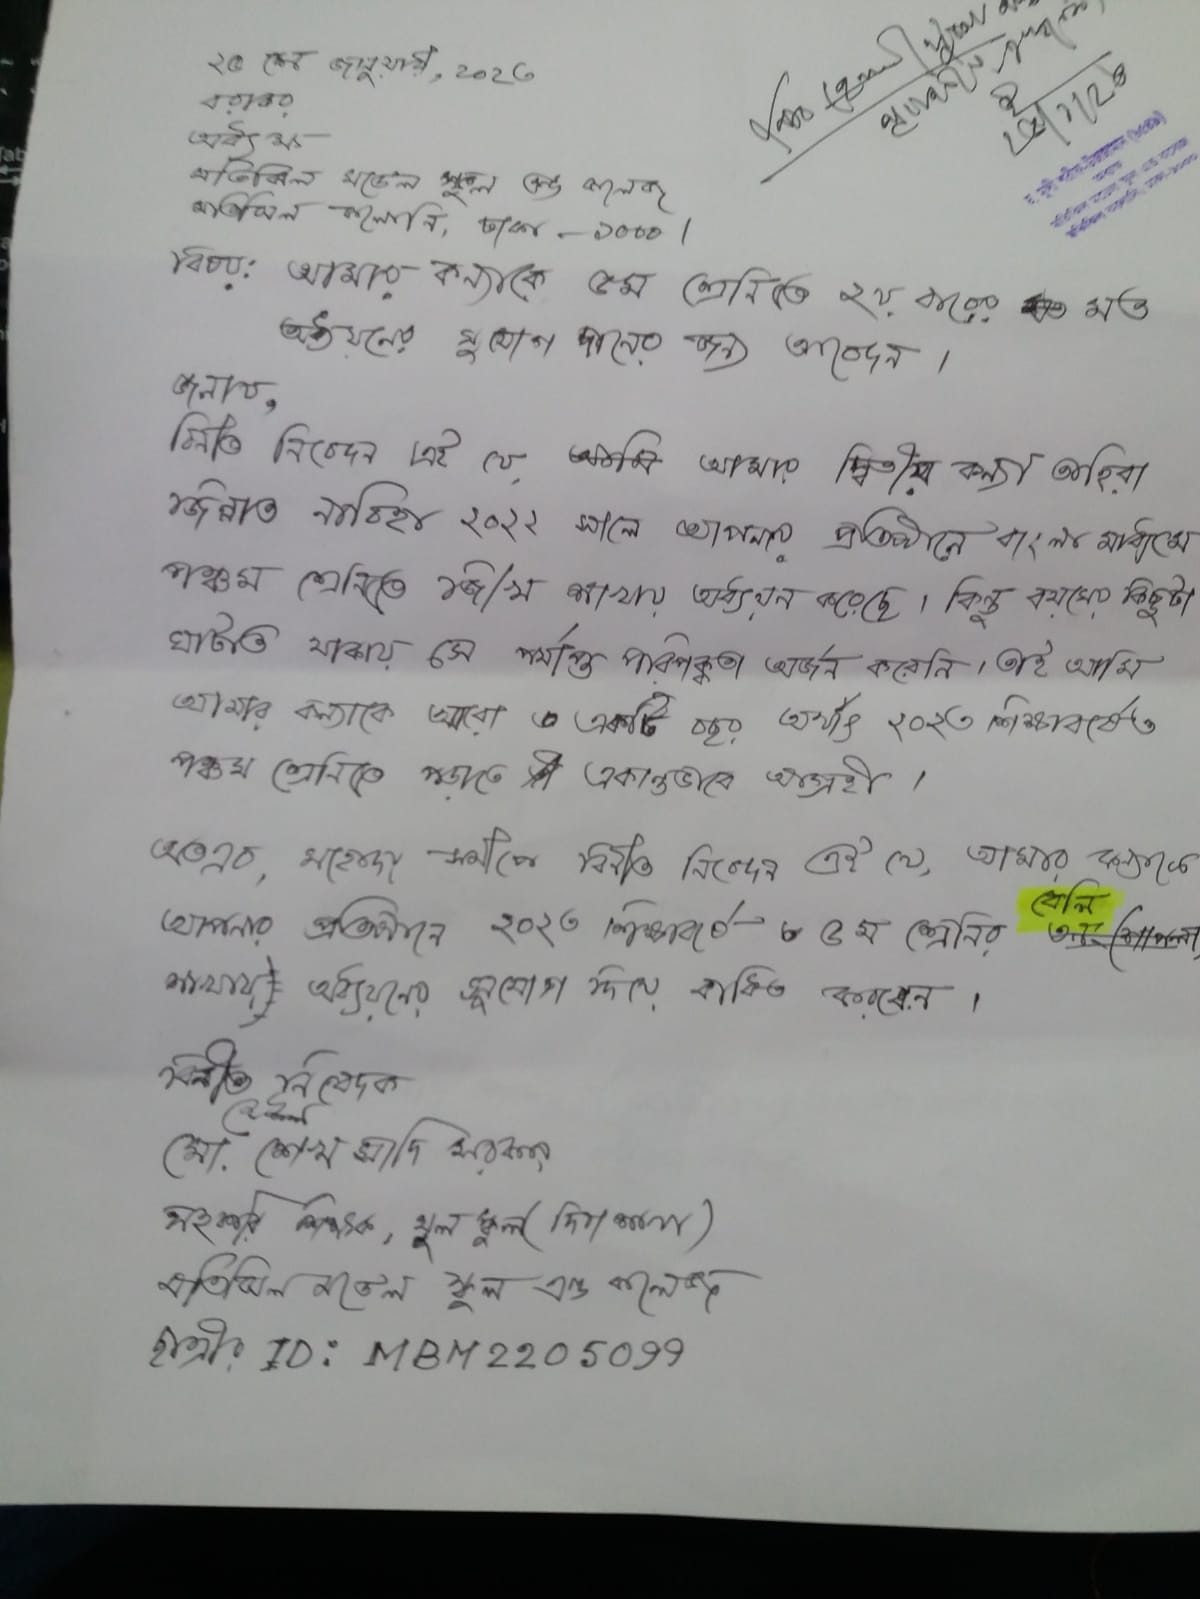 ২৫ শে জানুয়ারী, ২০২৩
বরাবর
অধ্যক্ষ
মতিঝিল মডেল স্কুল এন্ড কলেজ
মতিঝিল কলোনি, ঢাকা -১০০০।
বিষয়: আমার কন্যাকে ৫ম শ্রেনিতে ২য় বারের মত
অধ্যয়নের সুযোগ দানের জন্য আবেদন।
জনাব,
বিনীত নিবেদন এই যে আমি আমার দ্বিতীয় কন্যা তাহিরা
জিন্নাত নাবিহা ২০২২ সালে আপনার প্রতিষ্ঠানে বাংলা মাধ্যমে
পঞ্চম শ্রেনিতে শাখায় অধ্যয়ন করেছে। কিন্তু বয়সের কিছুটা
ঘাটতি থাকায় সে পর্যাপ্ত পরিপক্কতা অর্জন করেনি। তাই আমি
আমার কন্যাকে আরো একটি বছর অর্থাৎ ২০২৩ শিক্ষাবর্ষেও
পঞ্চম শ্রেনিতে পড়াতে একান্তভাবে আগ্রহী।
অতএব, মহোদয় সমীপে বিনীত নিবেদন এই যে, আমার কন্যাকে
আপনার প্রতিষ্ঠানে ২০২৩ শিক্ষাবর্ষে ৫ম শ্রেনির বেলি
শাখায় অধ্যয়নের সুযোগ দিয়ে বাধিত করবেন।
বিনীত নিবেদক
মো: শেখ সাদি সরকার
সহকারি শিক্ষক, মূল স্কুল (দিবা শাখা)
মতিঝিল মডেল স্কুল এন্ড কলেজ
ছাত্রীর ID: MBM2205099